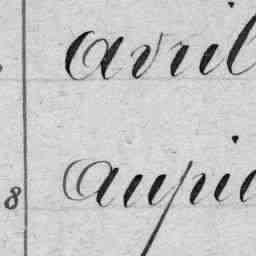 avril
8 aupic